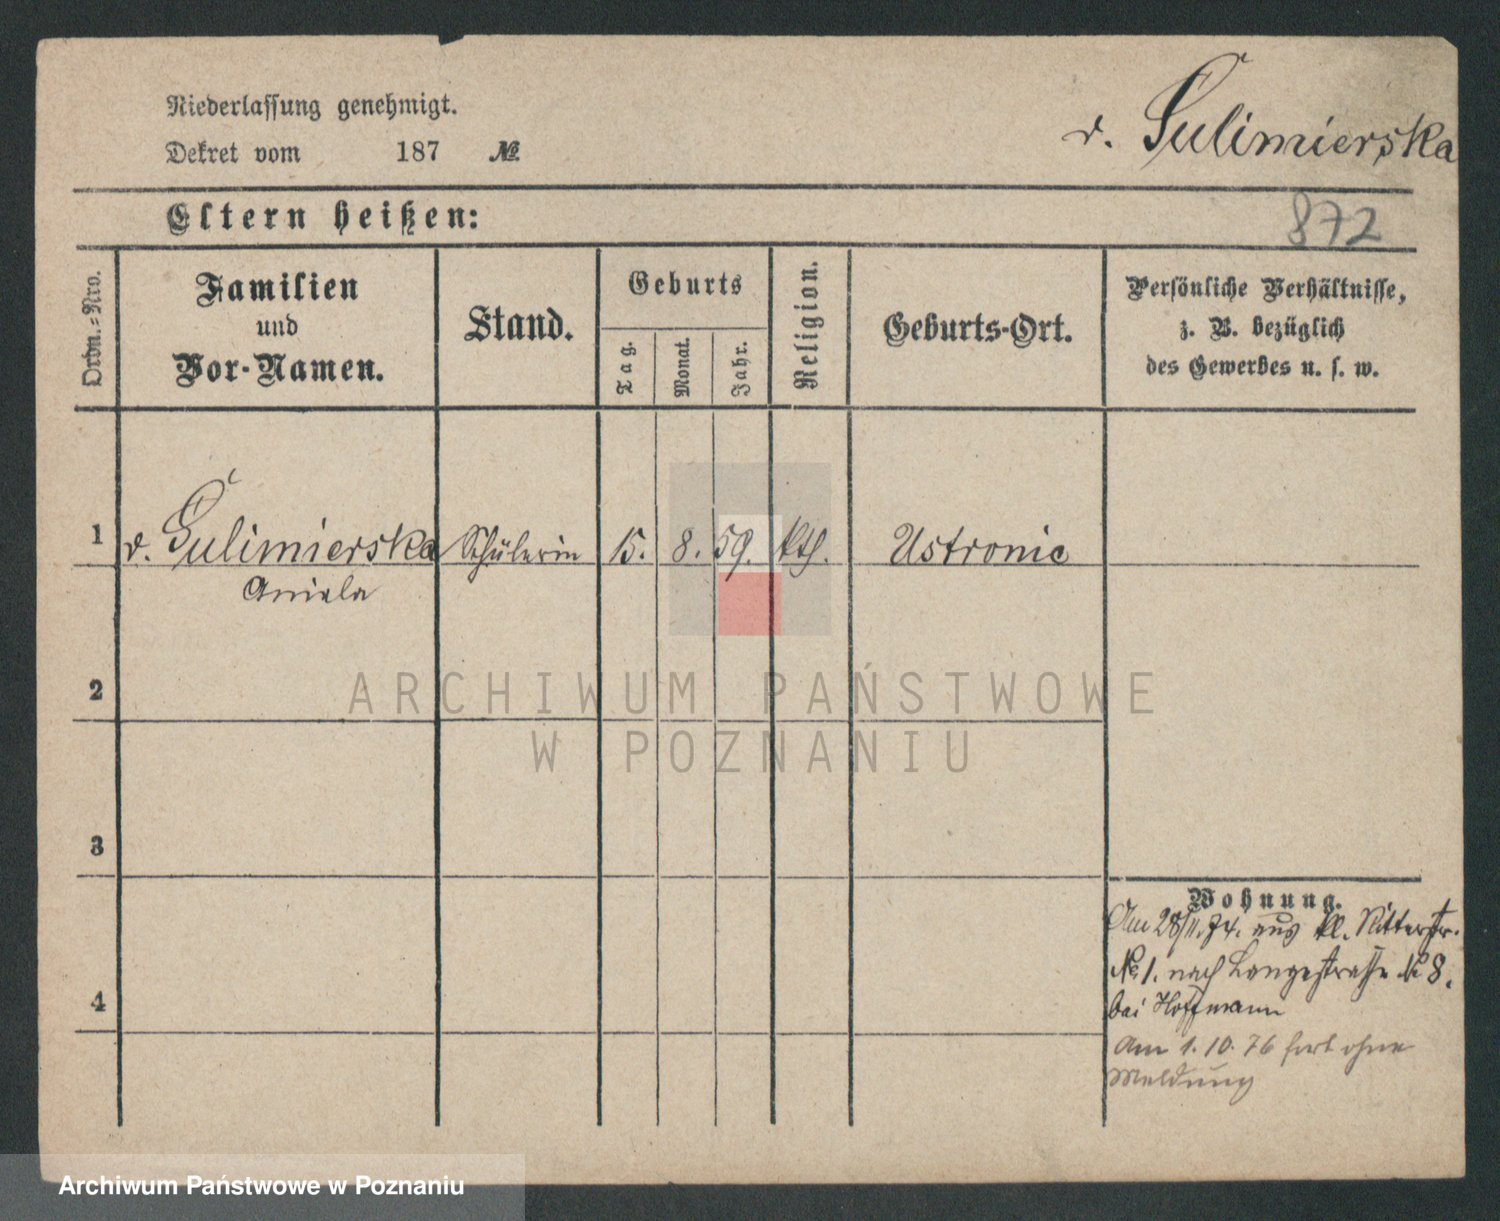 Niederlassung genehmigt.
Dekret vom 187 №
v. Sulimierska
Eltern heißen:
872
Ordn.-Nro.
Familien
und
Vor-Namen.
Stand.
Geburts
Tag.
Monat.
Jahr.
Religion.
Geburts-Ort.
Persönliche Verhältnisse,
z. B. bezüglich
des Gewerbes u. s. w.
1 v. Sulimierska Schülerin 15. 8. 59. kth. Ustronie
Aniela
2
ARCHIWUM PAŃSTWOWE
W POZNANIU
3
Wohnung.
Am 28/11.74. aus kl. Ritterstr.
№ 1. nach Langestrasse № 8.
bei Hoffmann
4
Am 1. 10. 76 fort ohne
Meldung
Archiwum Państwowe w Poznaniu